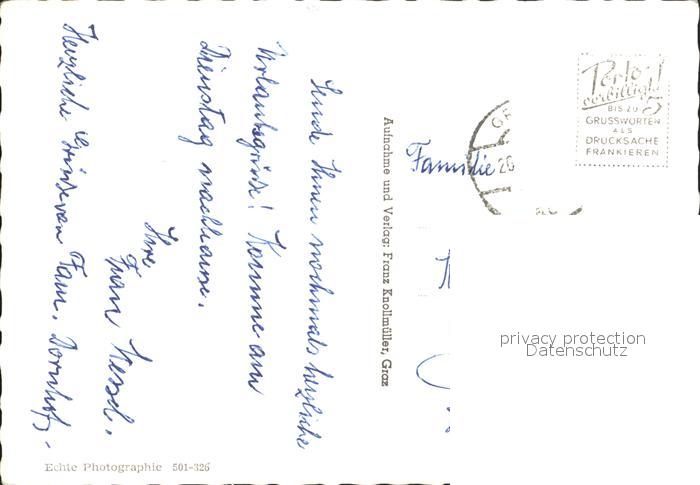 Sende Ihnen nochmals herzliche
Urlaubsgrüße! Komme am
Dienstag nachhause.
Ihre
Frau Hessl.
Herzliche Grüsse von Fam. Dornhofz.
Aufnahme und Verlag: Franz Knollmüller, Graz
Familie
20
Porto
verbilligt!
BIS ZU 5
GRUSSWORTEN
ALS
DRUCKSACHE
FRANKIEREN
privacy protection
Datenschutz
Echte Photographie 501-326